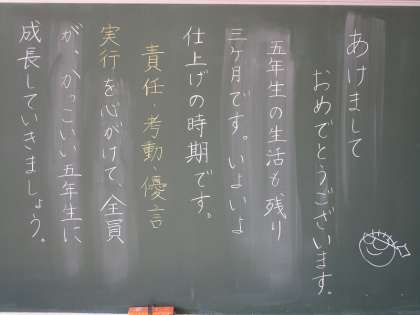 あけまして
おめでとうございます。
五年生の生活も残り
三ヶ月です。いよいよ
仕上げの時期です。
責任・考動・優言
実行を心がけて、全員
が、かっこいい五年生に
成長していきましょう。